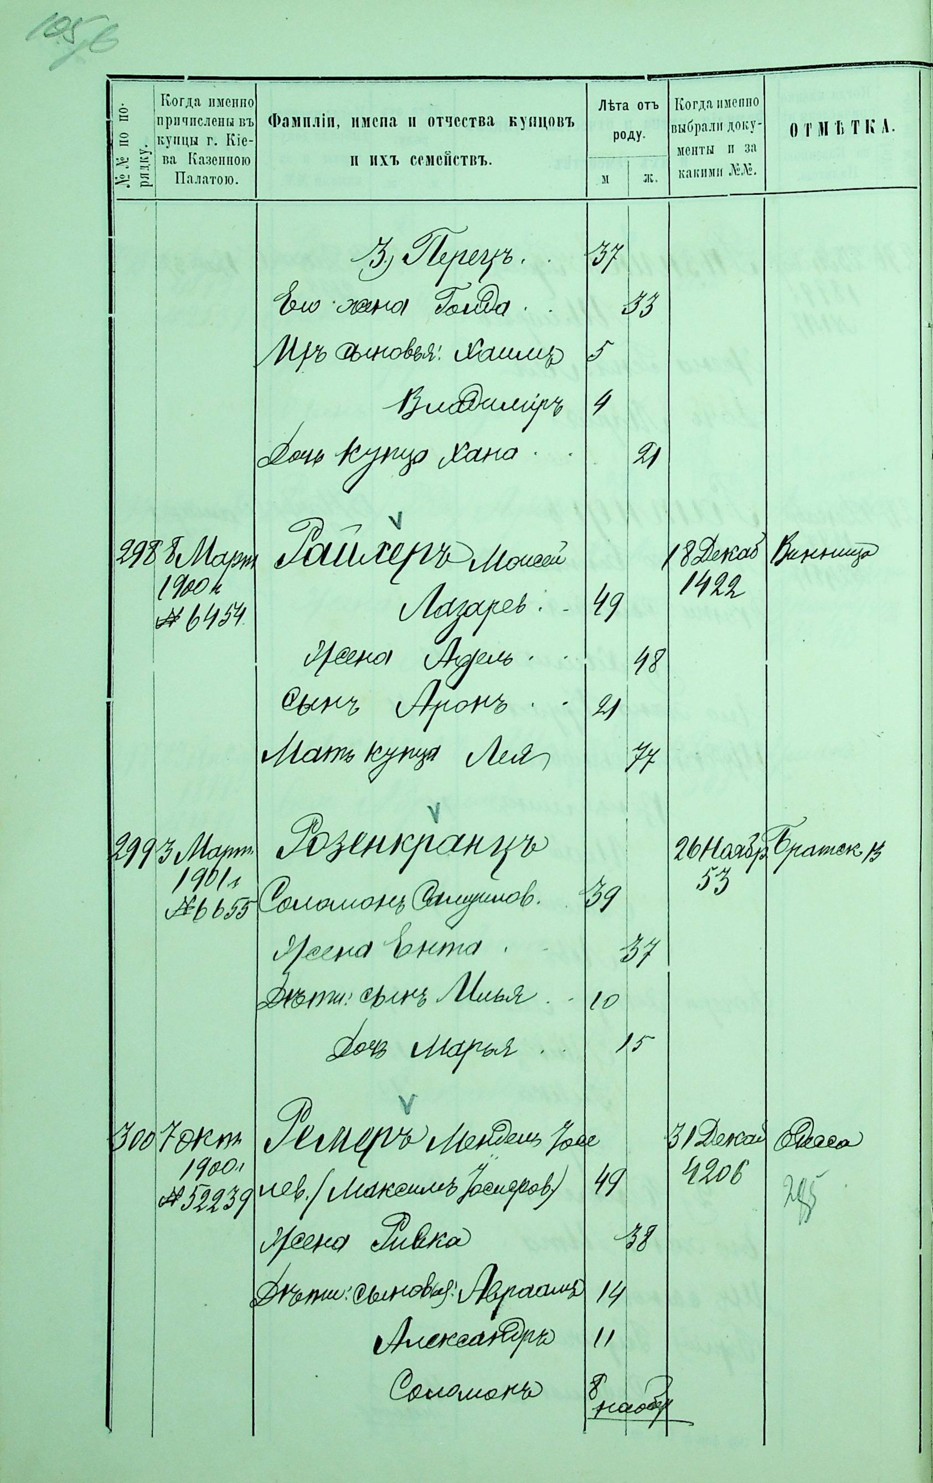 №№ по порядку.
Когда именно причислены въ купцы г. Кіева Казенною Палатою.
Фамиліи, имена и отчества купцовъ и ихъ семействъ.
Лѣта отъ роду.
м ж.
Когда именно выбрали документы и за какими №№.
ОТМѢТКА.
3) Перецъ 37
Его жена Голда 33
Ихъ сыновья: Хаимъ 5
Владиміръ 4
Дочь купца Хана 21
V
298 8 Март Райхеръ Моисей 18 Декаб Винница
1900 г 1422
№ 6454 Лазарев. 49
Жена Адель 48
Сынъ Аронъ 21
Мать купца Лея 77
V
299 3 Март Розенкранцъ 26 Ноябр. Братск
1901 г 53
№ 6655 Соломонъ 39
Жена Ента 37
Дѣти: сынъ Илья 10
Дочь Марья 15
V
300 7 окт Ремеръ Мендель Иосе 31 Декаб Одеса
1900 г 4206
№ 52239 лев. (Максимъ Иосифов) 49
285
Жена Ривка 38
Дѣти: сыновья: Авраамъ 14
Александръ 11
Соломонъ 8
наобр